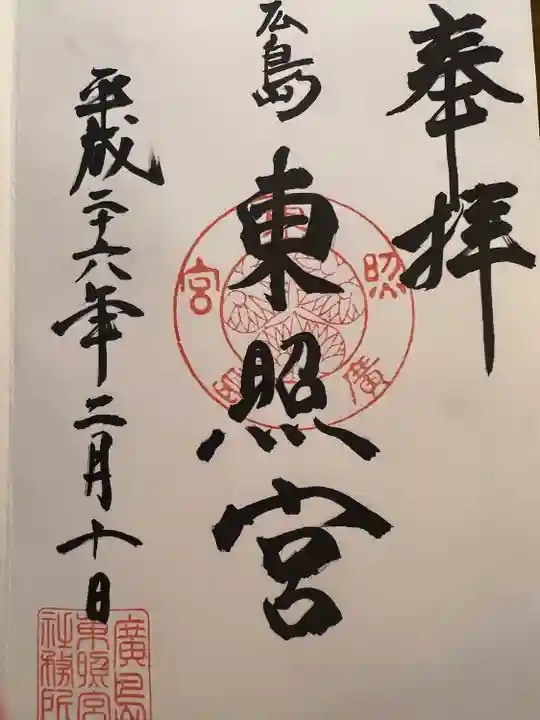 奉拝
広島
東照宮
東照宮廣島
平成二十六年二月十日
廣島
東照宮
社務所